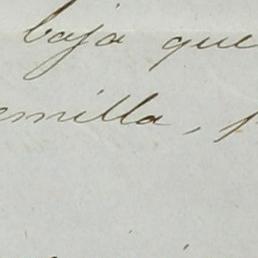 baja que
emilla,